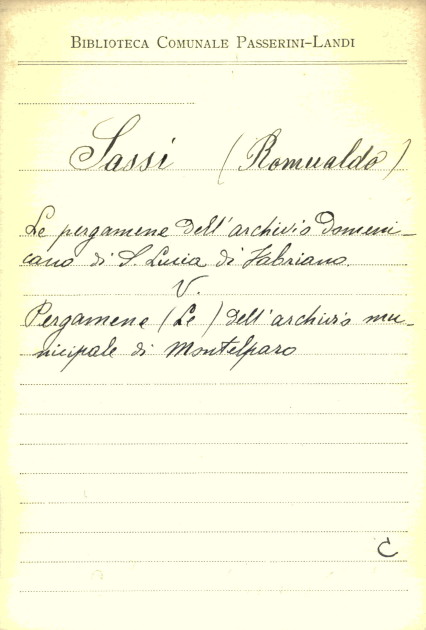 BIBLIOTECA COMUNALE PASSERINI-LANDI
Sassi (Romualdo)
Le pergamene dell'archivio Domeni-
cano di S. Lucia di Fabriano.
V.
Pergamene (Le) dell'archivio mu-
nicipale di Montelparo
C